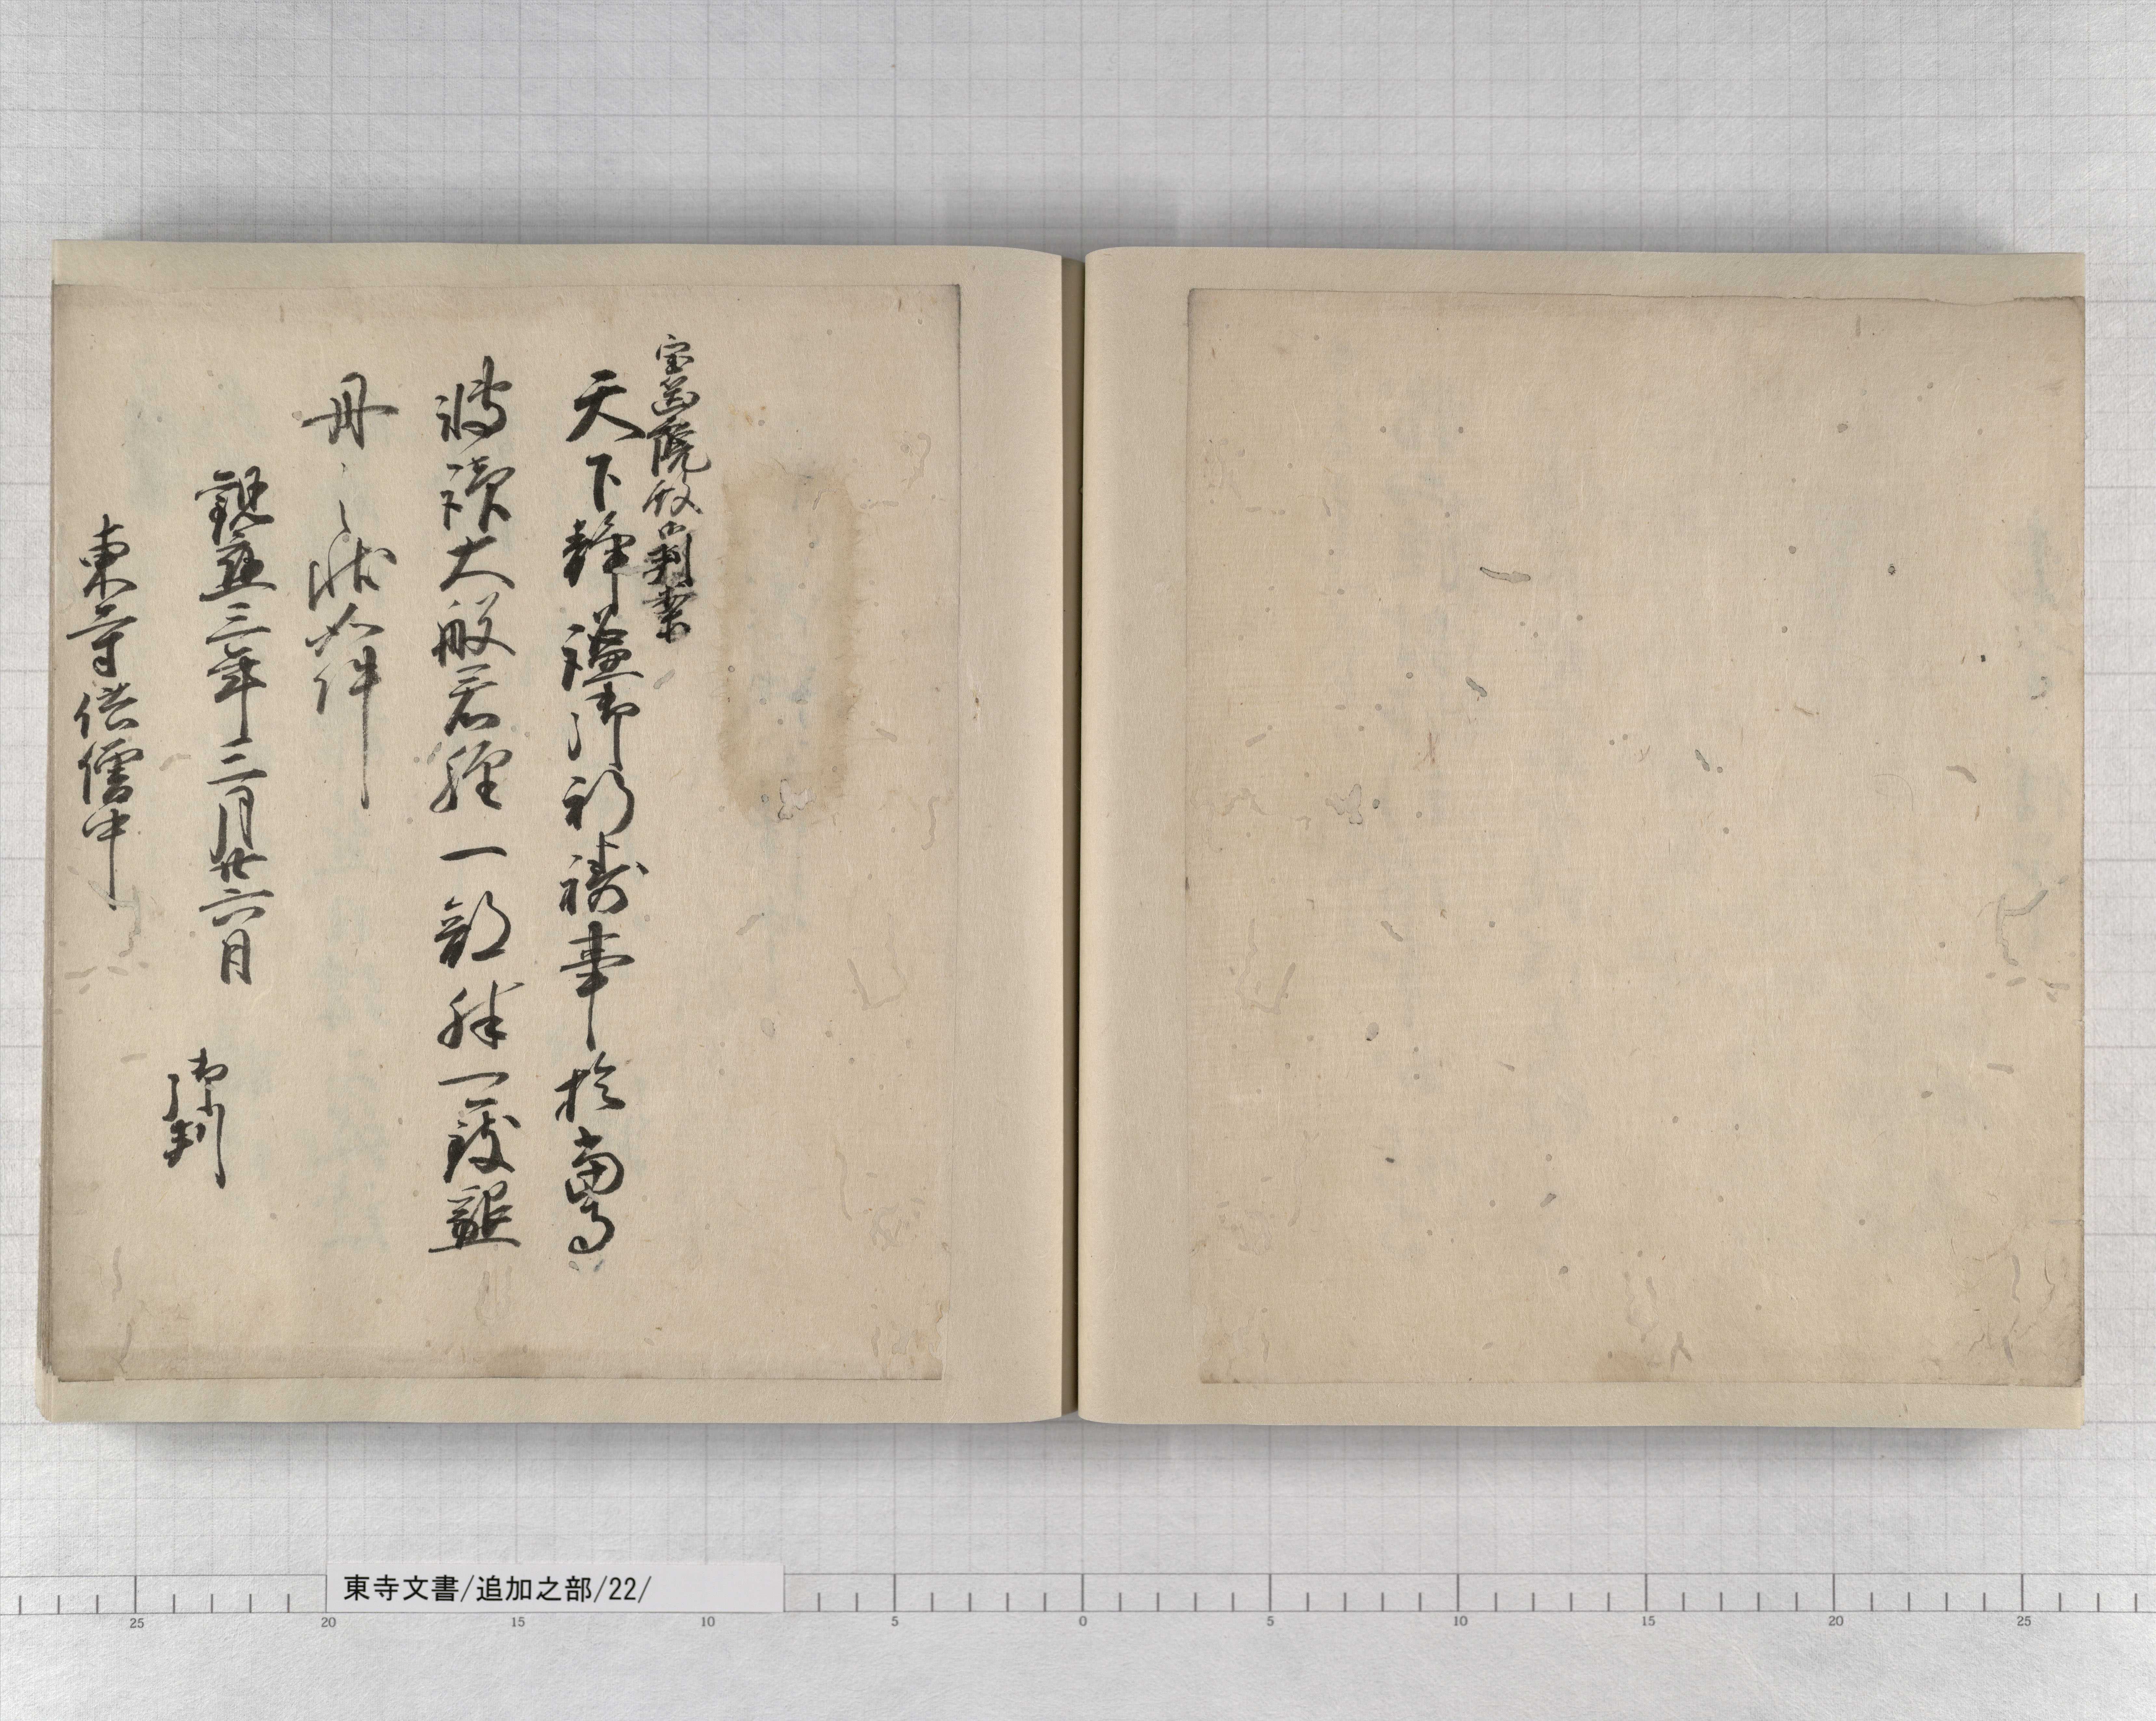 宝篋院殿御判案
天下静謐御祈禱事於當寺
轉讀大般若經一部殊可致懇
丹之状如件
觀應三年三月廿六日
御判
東寺供僧中
東寺文書/追加之部/22/
25 20 15 10 5 0 5 10 15 20 25